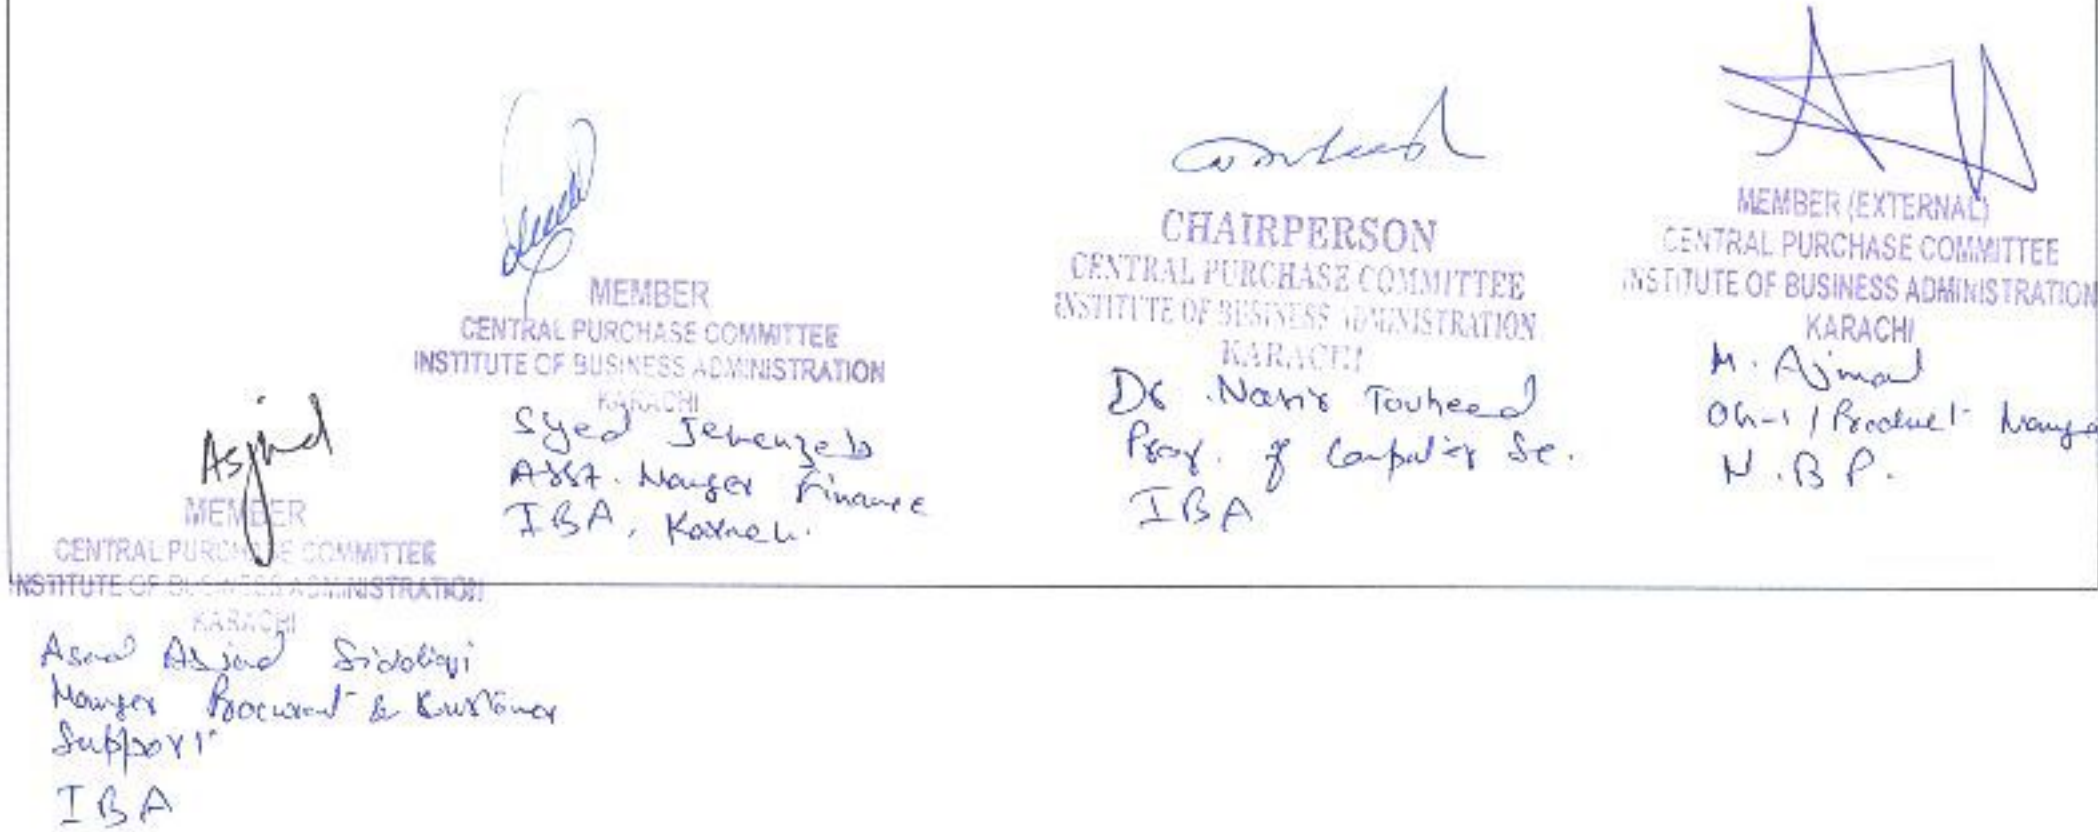 Asjad
MEMBER
CENTRAL PURCHASE COMMITTEE
INSTITUTE OF BUSINESS ADMINISTRATION
KARACHI
Asad Asjad Siddiqi
Manger Procurent & Customer
Support
IBA
MEMBER
CENTRAL PURCHASE COMMITTEE
INSTITUTE OF BUSINESS ADMINISTRATION
KARACHI
Syed Jehanzeb
Asst. Manger Finance
IBA, Karachi.
CHAIRPERSON
CENTRAL PURCHASE COMMITTEE
INSTITUTE OF BUSINESS ADMINISTRATION
KARACHI
Dr. Nasir Touheed
Prof. of Computer Sc.
IBA
MEMBER (EXTERNAL)
CENTRAL PURCHASE COMMITTEE
INSTITUTE OF BUSINESS ADMINISTRATION
KARACHI
M. Ajmal
OG-1 / Product Mange
N.B.P.